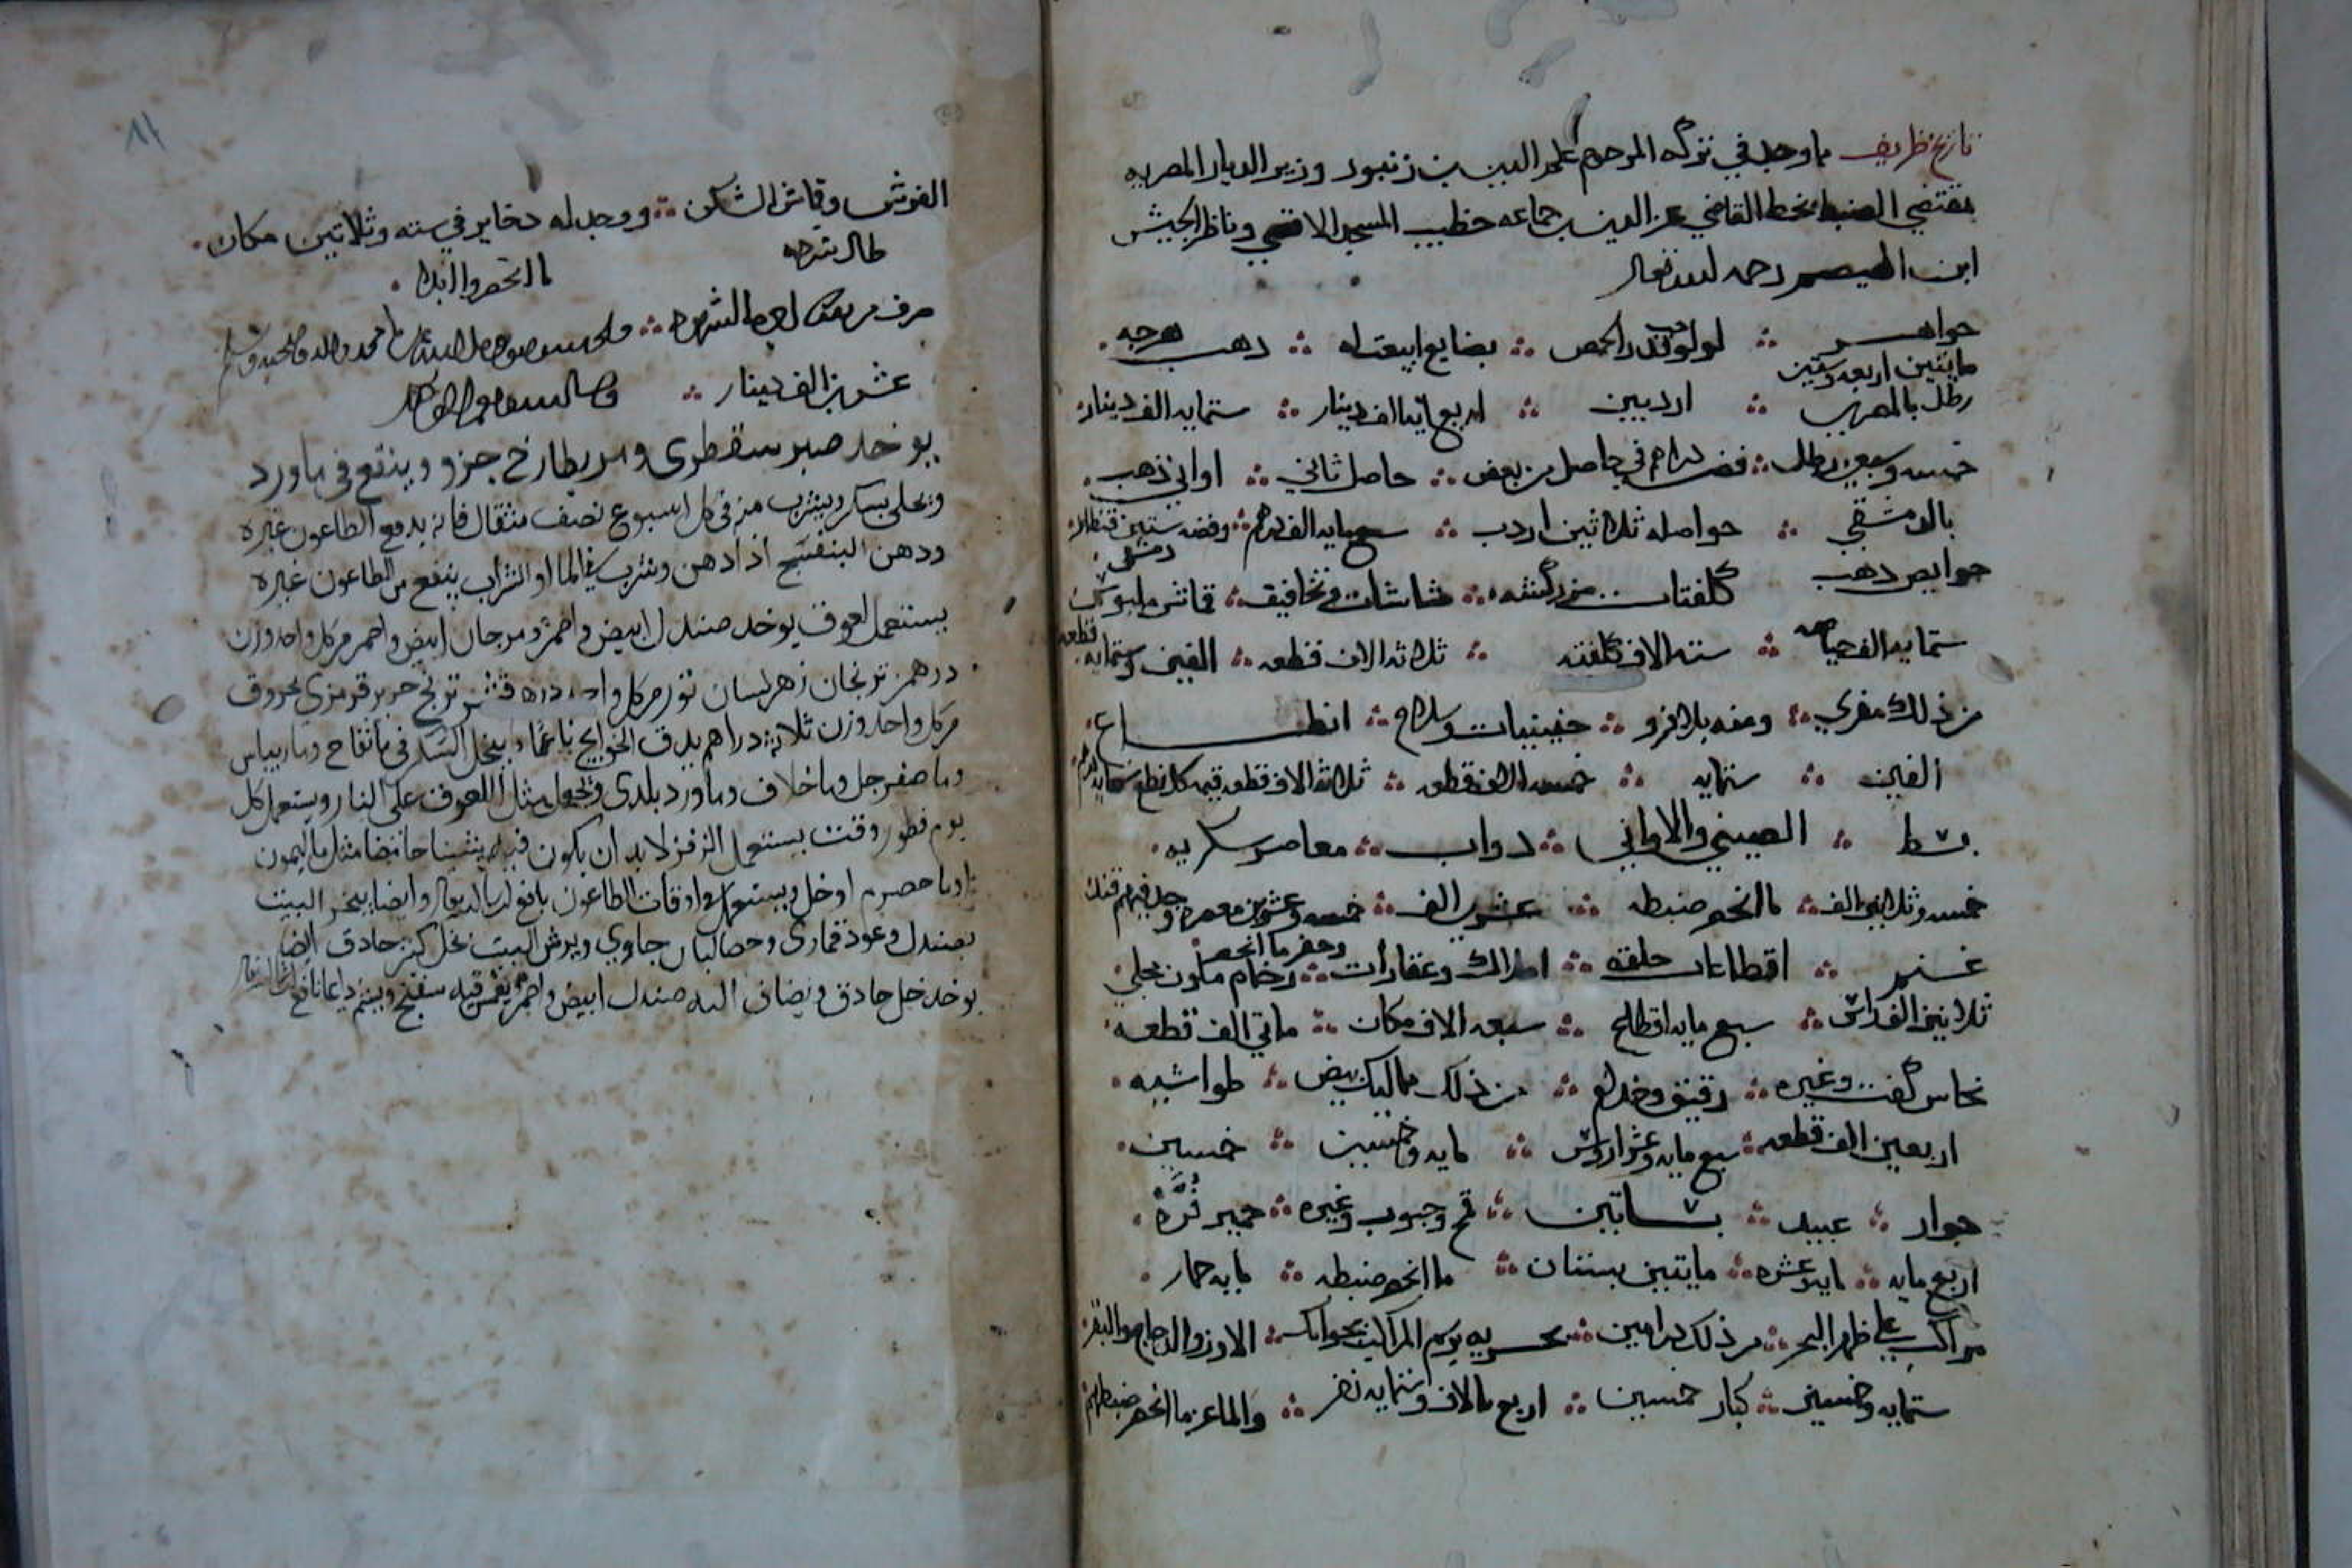 تاريخ ظريف ما وجد في تركه المرحوم علم الدين بن زنبور وزير الديار المصريه
بمقتضى الضبط بخط القاضي عز الدين بن جماعه خطيب المسجد الاقصى وناظر الجيش
ابن رحمه الله تعالى
جواهر لولو قدر الحمص بضايع ابيعت له دهب هرجه
مايتين اربعه وستين
رطل بالمصري اردبين اربع مايه الف دينار ستمايه الف دينار
خمسه وسبعين رطل فضه دراهم في حاصل من بعض حاصل ثاني اواني ذهب
بالدمشقي حواصله ثلاثين اردب سبع مايه الف درهم وفضه ستين قنطار
دمشقي
حوايص دهب كلفتات مزركشه شاشات وتخافيف قماش ملبوس
ستمايه الف حياصه سته الاف كلفته ثلاثه الاف قطعه الفين وستمايه قطعه
من ذلك مفري ومنه بلا فرو جنينيات وسلاح انطاع
الفين ستمايه خمسه الاف قطعه ثلاثه الاف قطعه قيمه كل نطع
بسط الصيني والاواني دواب معاصر سكريه
خمسه وثلاثين الف ما انحصر ضبطه عشرين الف خمسه وعشرين معصره وجد فيهم قند
وحضر ما انحصر
غنم اقطاعات حلقه املاك وعقارات رخام ملون مجلي
ثلاثين الف راس سبع مايه اقطاع سبعه الاف مكان مايتي الف قطعه
نحاس كفت وغيره رقيق وخدام من ذلك مماليك بيض طواشيه
اربعين الف قطعه سبع مايه وعشر اروس مايه وخمسين خمسين
جوار عبيد بساتين قمح وحبوب وغيره حمير فره
اربع مايه مايه وعشره مايتين بستان ما انحصر ضبطه مايه حمار
مراكب على ظهر البحر من ذلك درامين بحريه برسم المراكب بجوامك الاوز والدجاج والبقر
ستمايه وخمسين كبار خمسين اربع الاف وستمايه نفر والماعز ما انحصر ضبطهم
الفرش وقماش السكن ووجد له دخاير في سته وثلاثين مكان
طال شرحه
ما انحصر والبدا
صرف
عشرين الف دينار
يوخد صبر سقطرى ومر بطارخ جزو وينقع في ماورد
ويحلى بسكر ويشرب منه في كل اسبوع نصف مثقال فانه يدفع الطاعون غيره
ودهن البنفسج اذا دهن وشرب في الما او الشراب ينفع من الطاعون غيره
يستعمل لعوق يوخد صندل ابيض واحمر ومرجان ابيض واحمر من كل واحد وزن
درهم ترنجان زهر لسان ثور من كل واحد درهم قشر ترنج حرير قرمزي محروق
من كل واحد وزن ثلاثه دراهم يدق الحوايج ناعما ويحل السكر في ما تفاح وما ريباس
وما صفرجل وما خلاف وماورد بلدي ويجعل مثال اللعوق على النار ويستعمل كل
يوم فطور وقت يستعمل الزفر لابد ان يكون فيه شيئا حامضا مثل ما اليمون
او ما حصرم او خل ويستعمل في اوقات الطاعون نافع ان شا الله تعالى وايضا يبخر البيت
بصندل وعود قماري وحصالبان جاوي ويرش البيت بخل كبر حادق ايضا
يوخد خل حادق ويضاف اليه صندل ابيض واحمر يغمس فيه سفنج ويشم دايما نافع ان شا الله تعالى